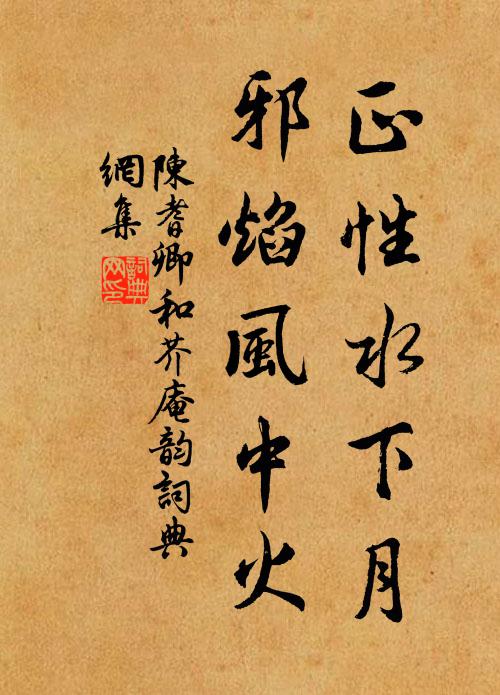 正性水下月
邪焰風中火
陳耆卿和芥庵韵詞典
網集
詞典
网印